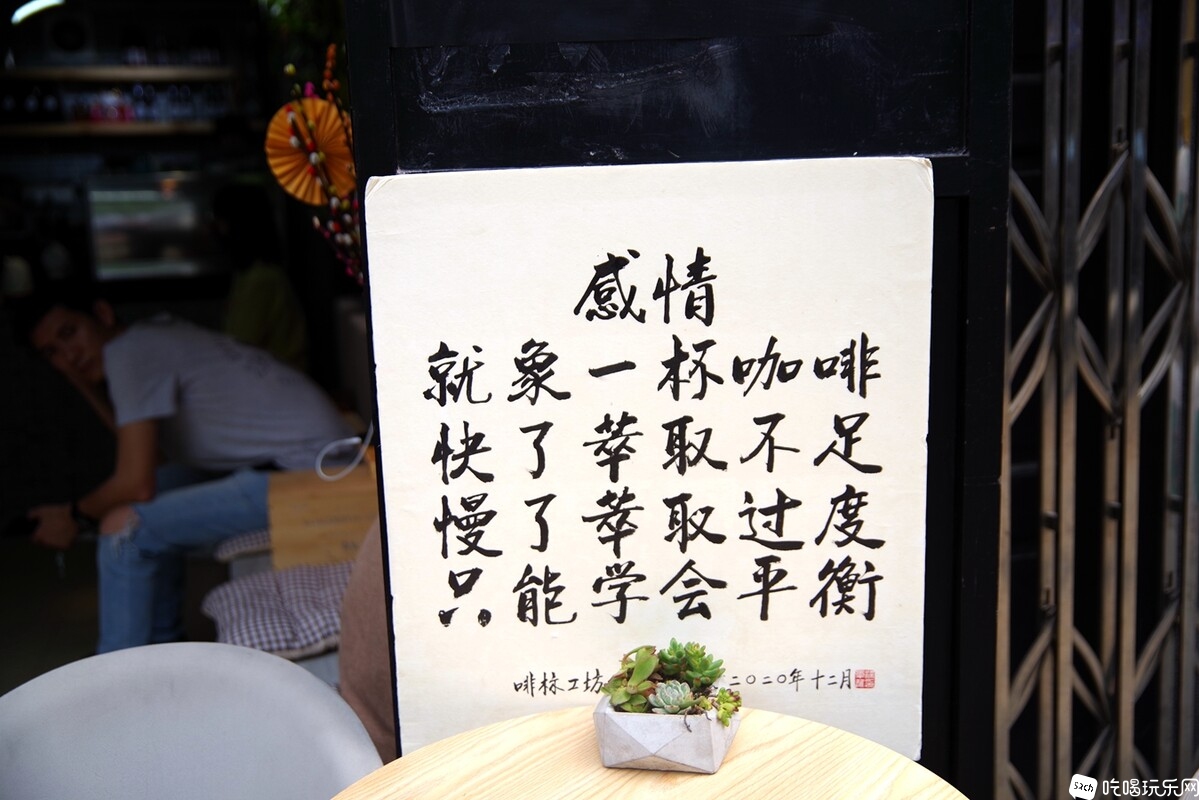 感情
就象一杯咖啡
快了萃取不足
慢了萃取过度
只能学会平衡
啡标工坊
二〇二〇年十二月
sach 吃喝玩乐网